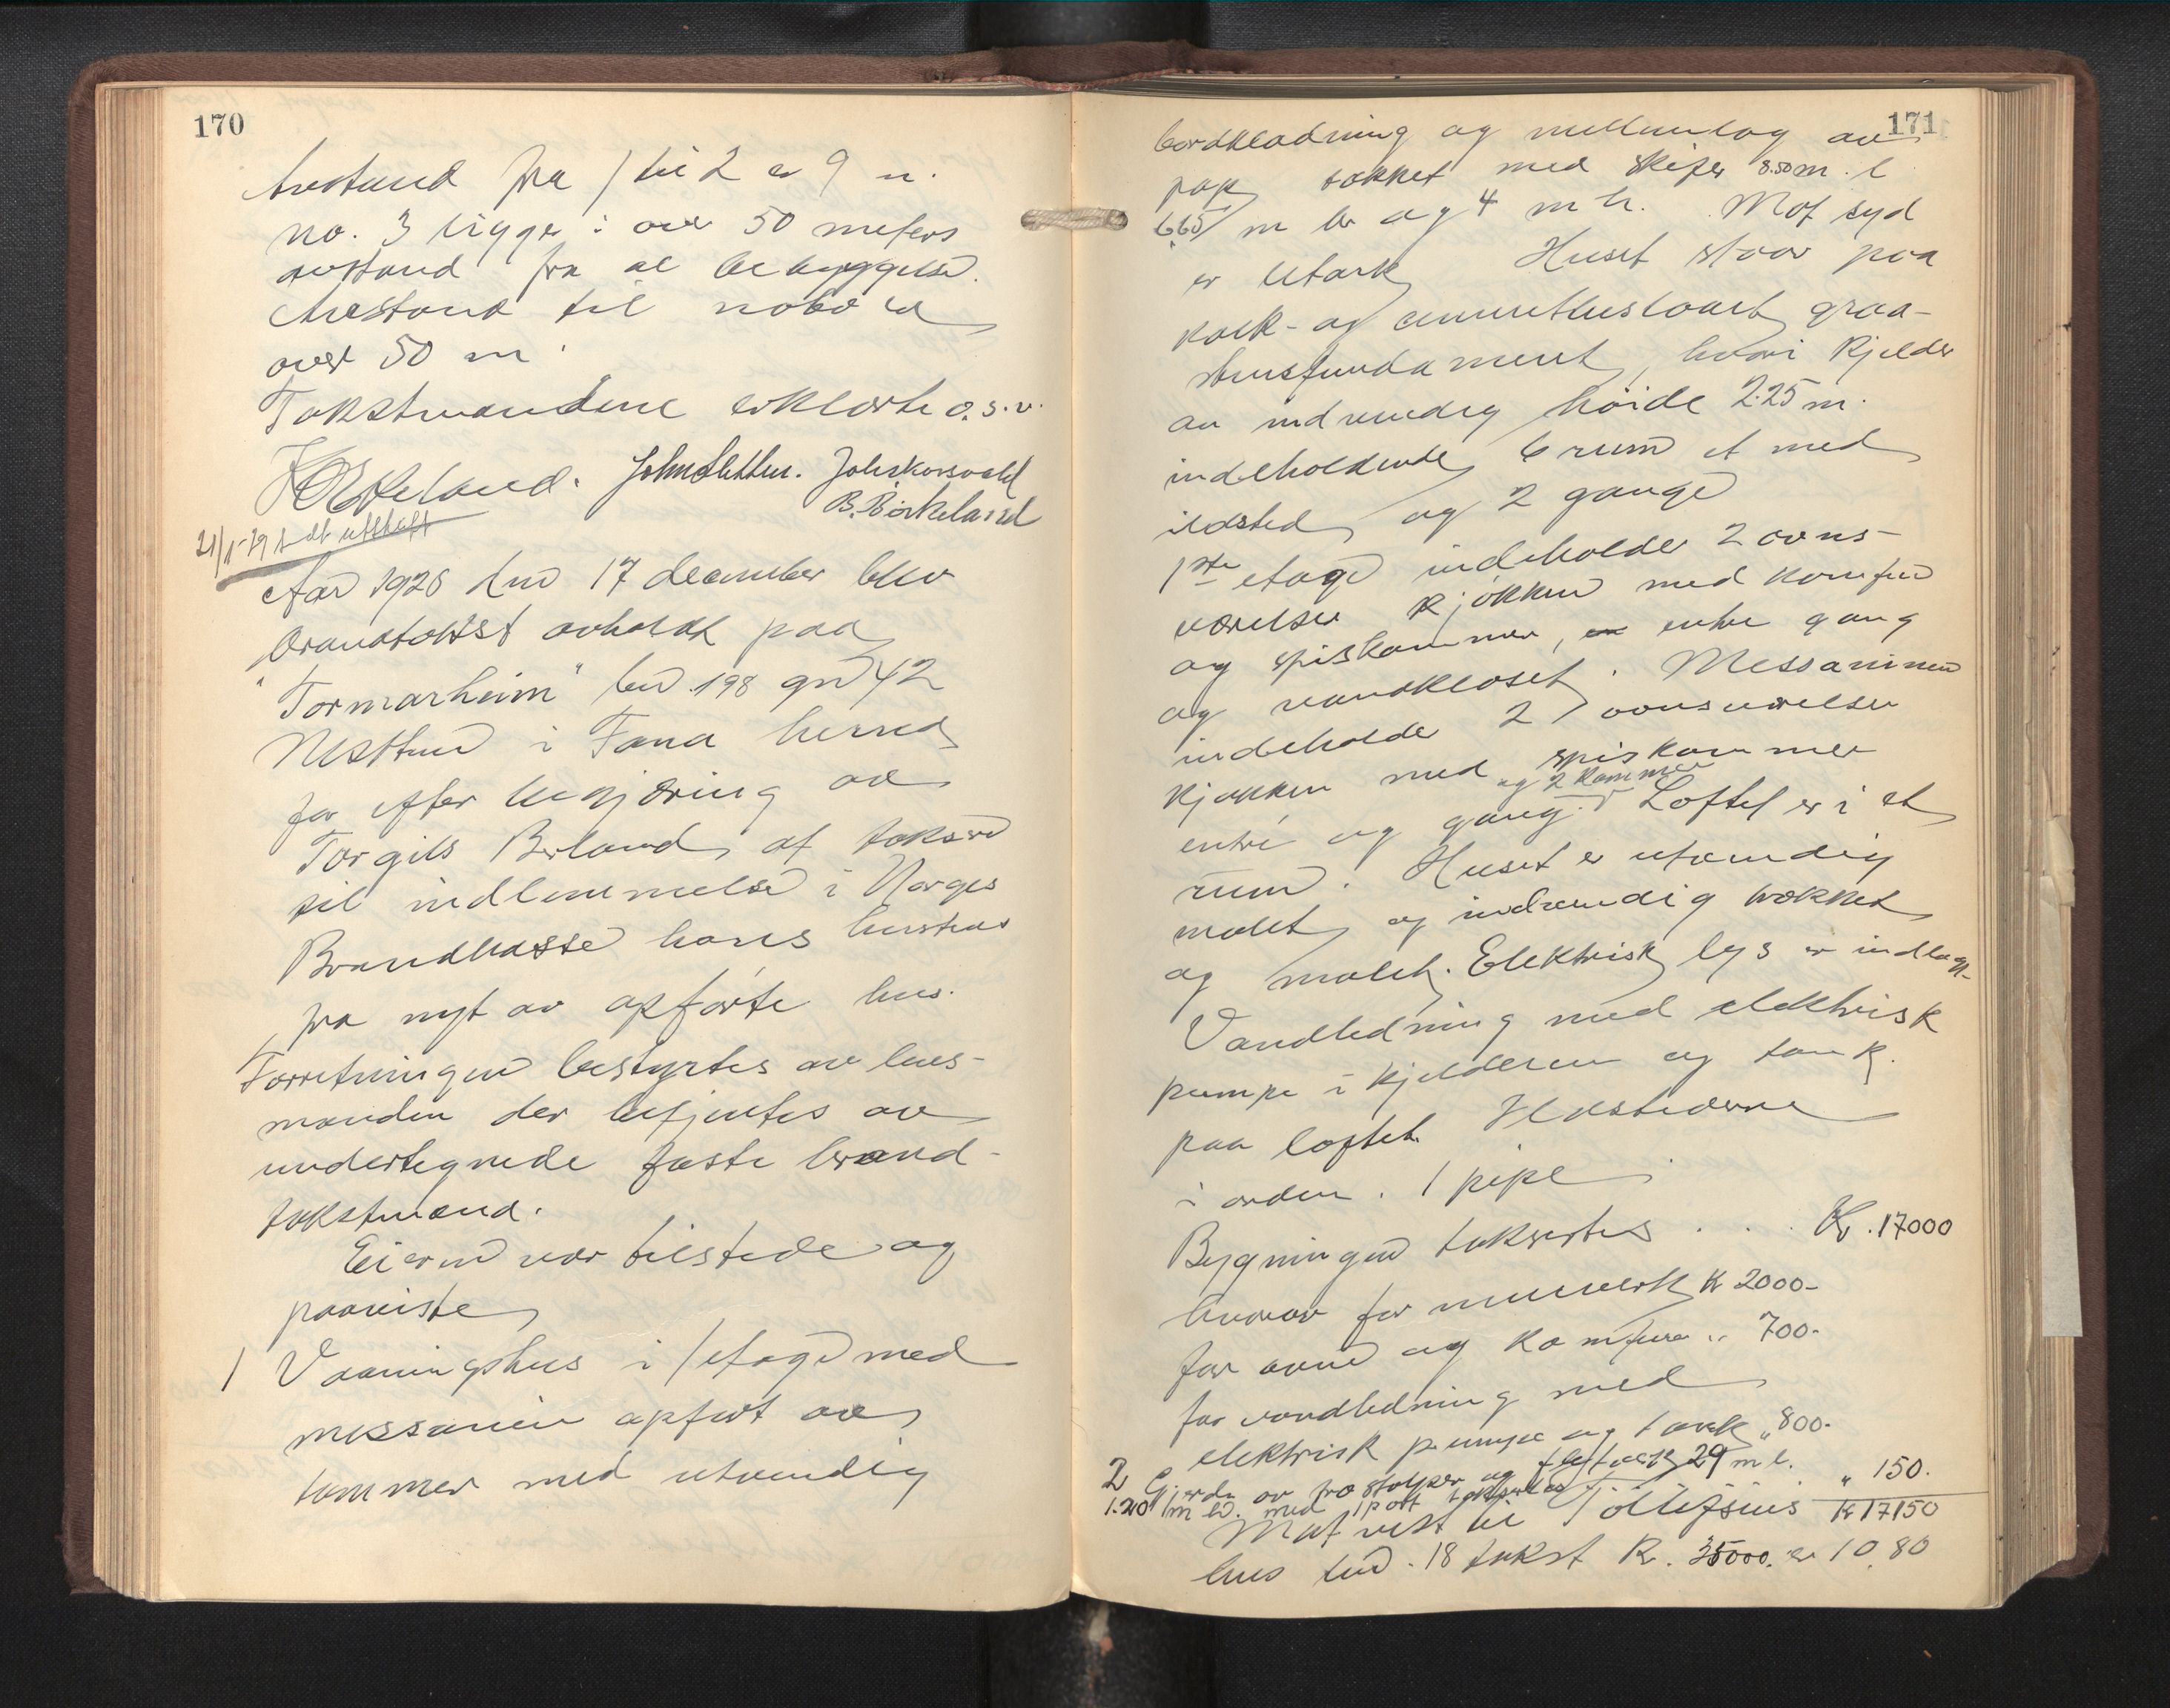 170
Avstand fra 1 til 2 er 9 m.
no. 3 ligger i over 50 meters
avstand fra al bebyggelse.
Avstand til nabo er
over 50 m.
Takstmændene erklærte o.s.v.
John Sletten. Joh. Korsvold
B. Birkeland
21/1-29 utskrift
Aar 1928 den 17 december blev
brandtakst avholdt paa
"Tormarheim" bno 198 gno 42
Nesttun i Fana herred
for efter begjæring av
Torgils Berland at taksere
til indlemmelse i Norges
Brandkasse hans hustrus
fra nyt av opførte hus.
Forretningen bestyrtes av lens-
manden der betjentes av
undertegnede faste brand-
takstmænd.
Eieren var tilstede og
paaviste
1 Vaaningshus i 1 etage med
messanin opført av
tømmer med utvendig
171
bordklædning og mellemlag av
pap, tækket med skifer 8.50 m. l
6.65 m br og 4 m h. Mot syd
er et ark. Huset staar paa
kalk- og cementpudset graa-
stensfundament, hvori kjelder
av indvendig høide 2.25 m.
indeholdende 6 rum et med
ildsted, og 2 gange
1ste etage indeholder 2 ovns-
værelser kjøkken med komfur
og spiskammer, entre gang
og vandkloset. Messaninen
indeholder 2 ovnsværelser
kjøkken med spiskammer
og 2 kammer
entré og gang. Loftet er i et
rum. Huset er utvendig
malet og indvendig trækket
og malet. Elektrisk lys er indlagt.
Vandledning med elektrisk
pumpe i kjelderen og tank
paa loftet. Ildstederne
i orden. 1 pipe
Bygningen takseres . . . Kr. 17000
hvorav for murverk kr 2000-
for ovne og komfure " 700-
for vandledning med
elektrisk pumpe og tank " 800-
2 Gjerde av træstolper og flettverk 29 m l.
1.20 m h. med 1 port takseres " 150.
Kr 17150
Mot vest til Tollefsens
hus bno. 18 takst Kr. 35000. er 10.80